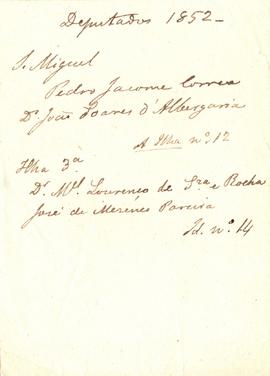 Deputados 1852
S. Miguel
Pedro Jacome Correa
Dr. João Soares d'Albergaria
A Ilha nº. 12
Ilha 3ª.
Dr. Mel. Lourenço de Sza e Rocha
José de Menezes Pareira
Id. nº. 14